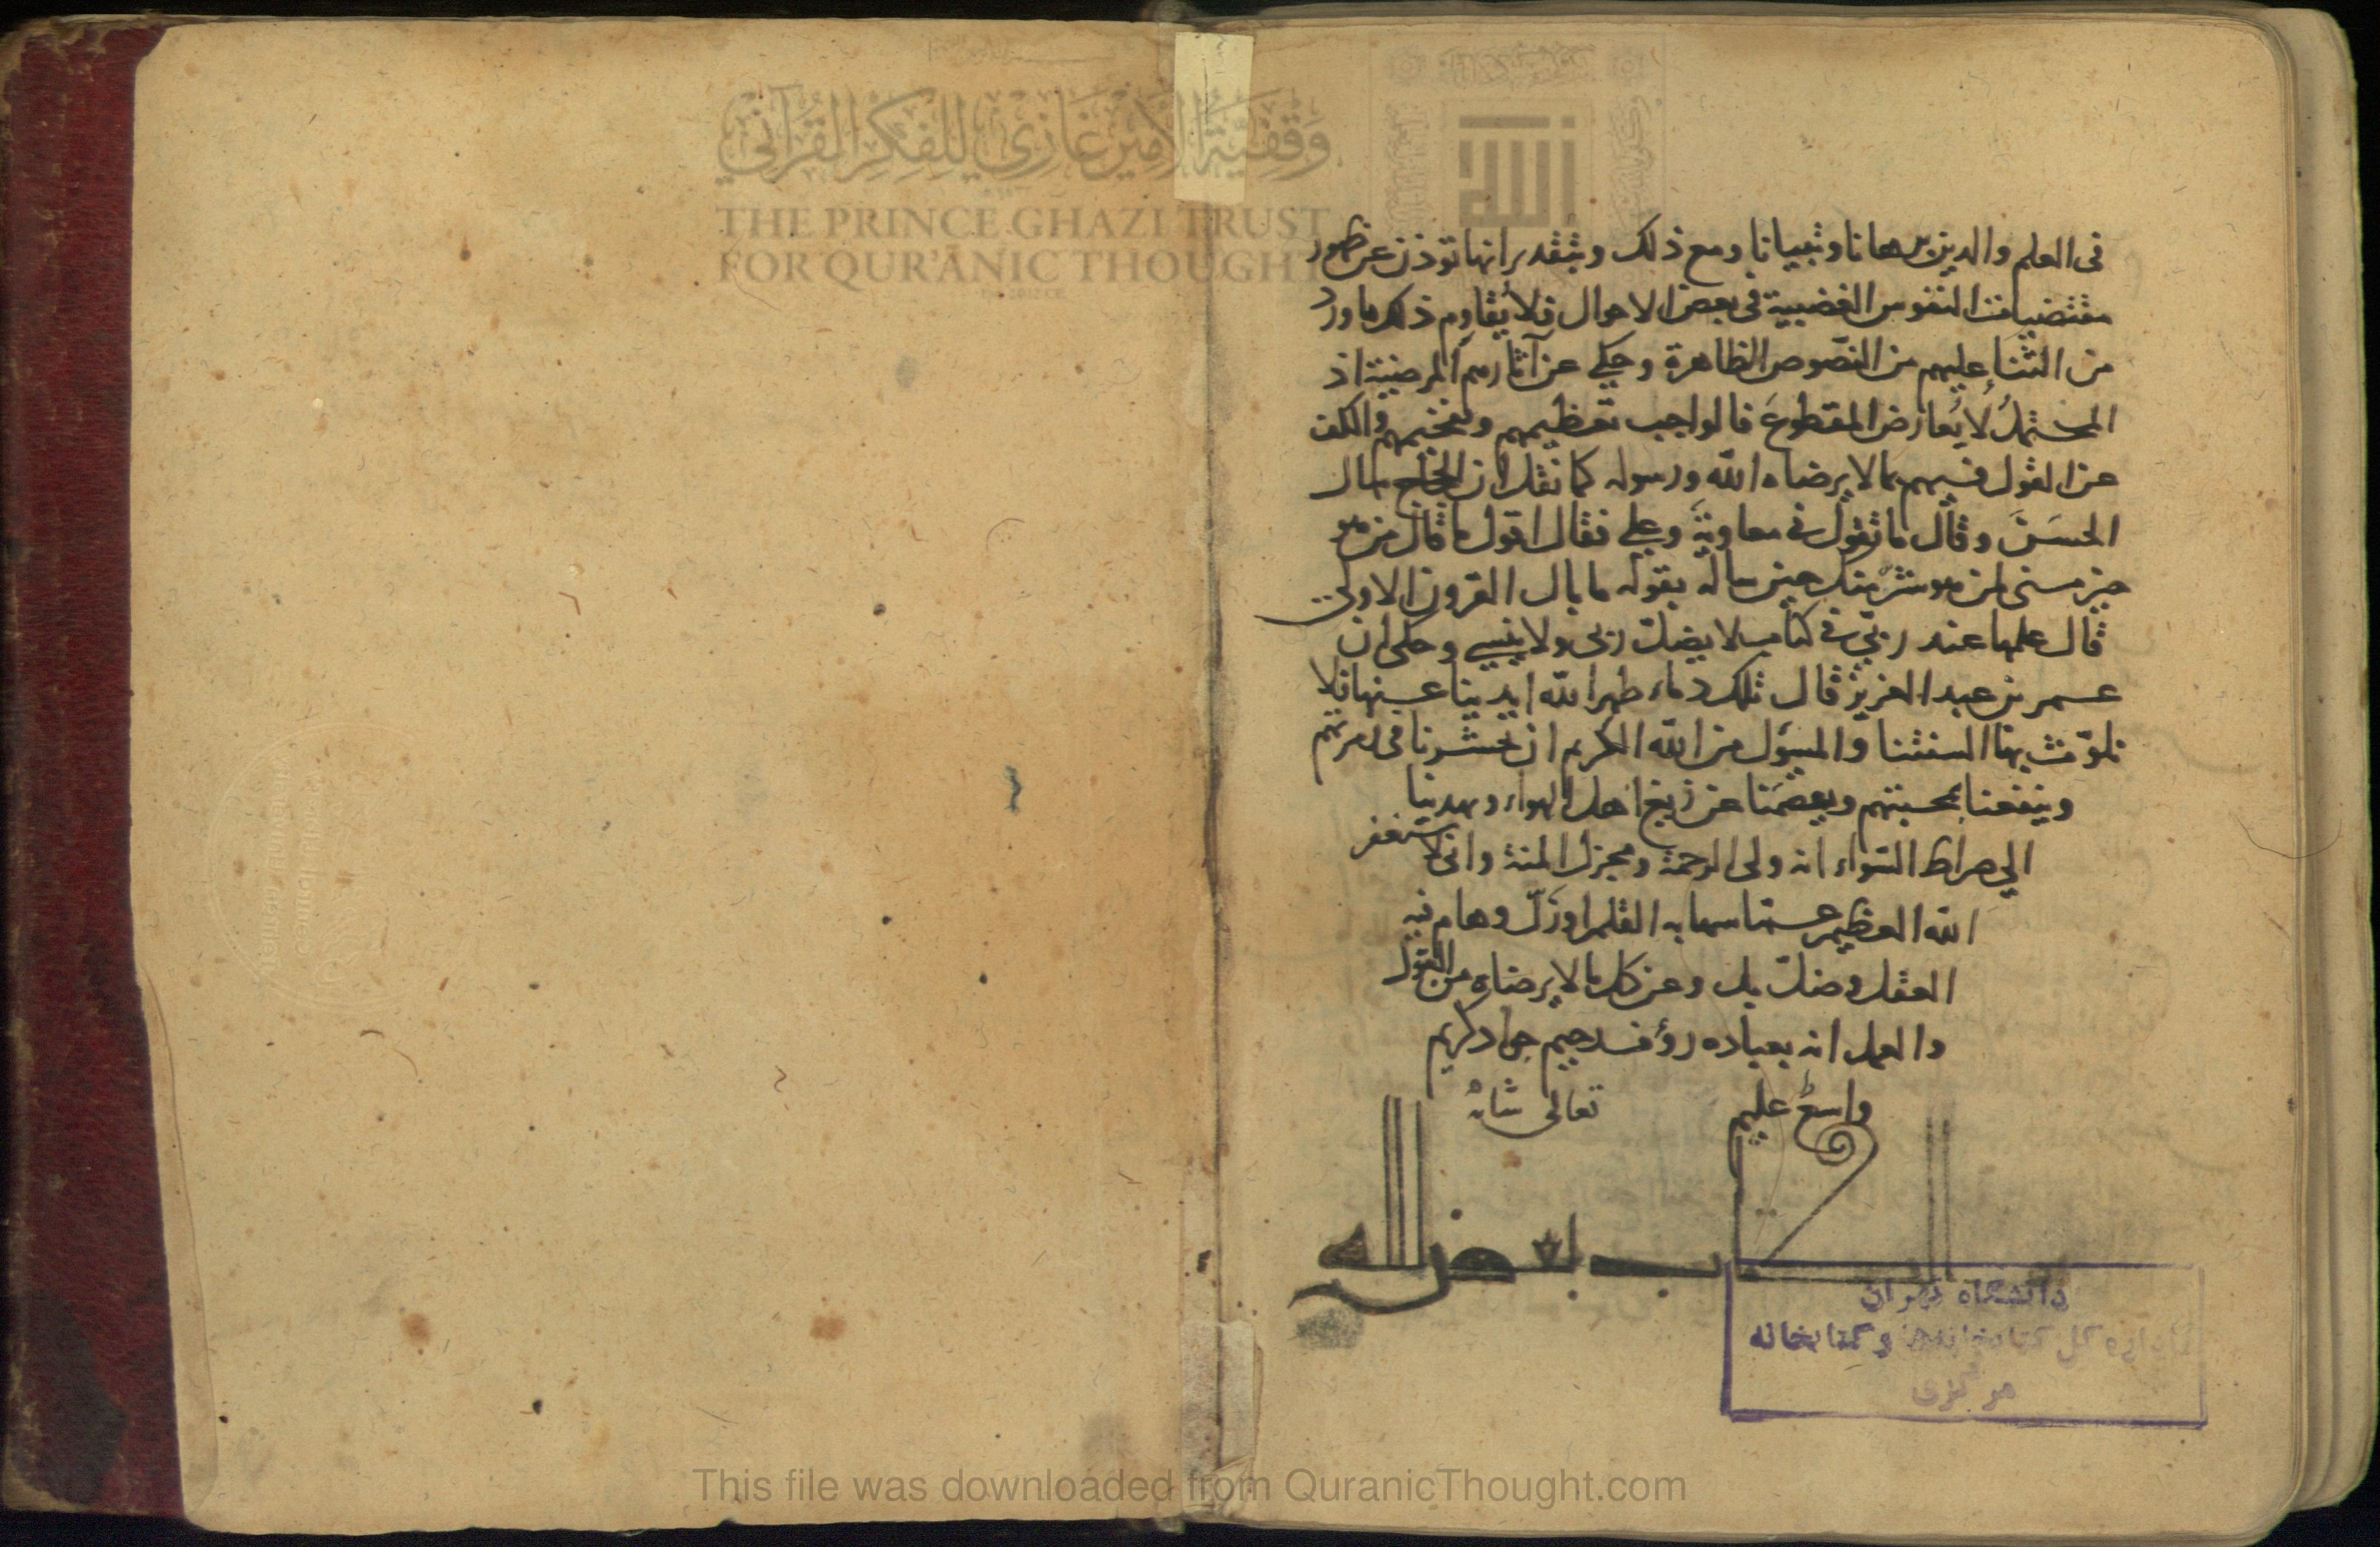 وقفية الأمير غازي للفكر القرآني
THE PRINCE GHAZI TRUST
FOR QUR'ANIC THOUGHT
في العلم والدين برهانا وتبيانا ومع ذلك وبتقدير انها توذن عن ظهور
مقتضيات النفوس الغضبية في بعض الاحوال فلا يقاوم ذلك ما ورد
من الثناء عليهم من النصوص الظاهرة وحكي عن آثارهم المرضية اذ
المحتمل لا يعارض المقطوع فالواجب تعظيمهم وتفخيمهم والكف
عن القول فيهم بما لا يرضاه الله ورسوله كما نقل ان الحجاج سال
الحسن وقال ما تقول في معاوية وعلي فقال اقول ما قال من هو
خير مني لمن هو شر منك حين ساله بقوله ما بال القرون الاولى
قال علمها عند ربي في كتاب لا يضل ربي ولا ينسي وحكى ان
عمر بن عبد العزيز قال تلك دماء طهر الله ايدينا عنها فلا
نلوث بها السنتنا والمسؤل من الله الكريم ان يحشرنا في زمرتهم
وينفعنا بمحبتهم ويعصمنا عن زيغ اهل الهواء ويهدينا
الي صراط السواء انه ولي الرحمة ومجزل المنة واني استغفر
الله العظيم عما سها به القلم او زل وهام فيه
العقل وضل بل وعن كل ما لا يرضاه من القول
والعمل انه بعباده رؤف رحيم جواد كريم
واسع عليم تعالى شانه
دانشگاه تهران
اداره كل كتابخانه‌ها و كتابخانه
مركزی
This file was downloaded from QuranicThought.com